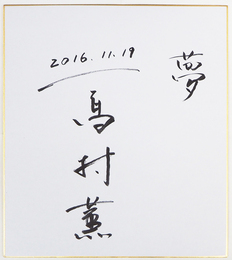 夢
2016.11.19
髙村薫